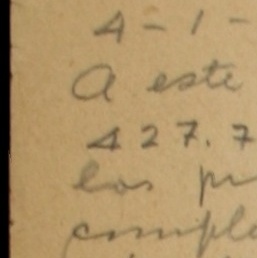 4-1-
A este
427.7
los pr
comple